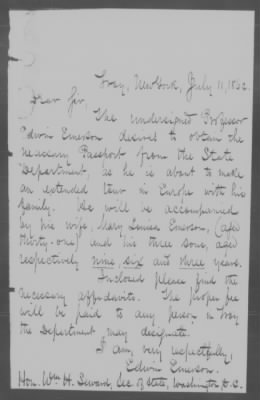 Troy, New York, July 11, 1862.
Dear Sir
The undersigned Professor
Edwin Emerson desires to obtain the
necessary Passport from the State
Department, as he is about to make
an extended tour in Europe with his
family. He will be accompanied
by his wife, Mary Louisa Emerson, (aged
thirty-one) and his three sons, aged
respectively nine six and three years.
Inclosed please find the
necessary affidavits. The proper fee
will be paid to any person in Troy
the Department may designate.
I am, very respectfully,
Edwin Emerson.
Hon. Wm H. Seward, Sec. of State, Washington D.C.